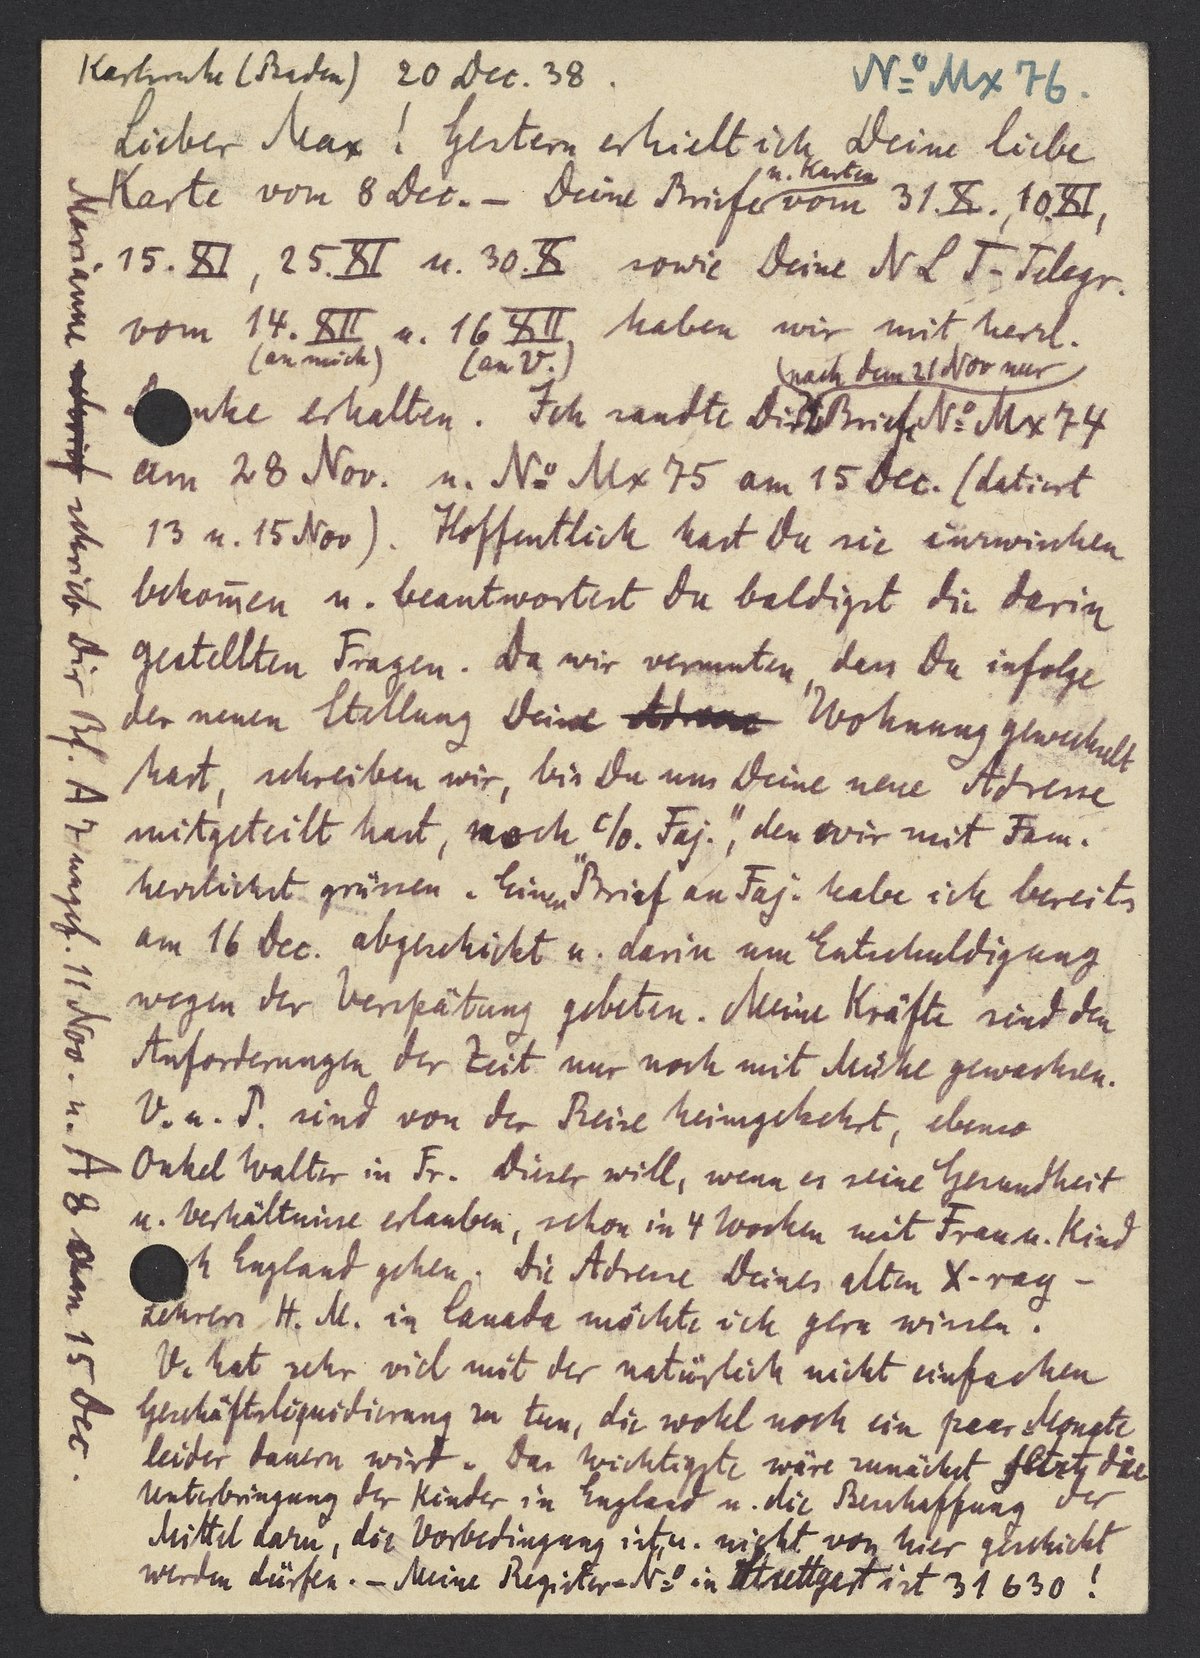 Karlsruhe (Baden) 20 Dec. 38.
Nº Mx 76.
Lieber Max! Gestern erhielt ich Deine liebe
u. Karten
Karte vom 8 Dec. – Deine Briefe vom 31.X., 10.XI,
15. XI, 25. XI u. 30. X sowie Deine NLT-Telegr.
vom 14. XII u. 16 XII haben wir mit herzl.
(an mich) (an V.)
(nach dem 21 Nov nur)
nke erhalten. Ich sandte Dir Briefe Nº Mx 74
am 28 Nov. u. Nº Mx 75 am 15 Dec. (datiert
13 u. 15 Nov). Hoffentlich hast Du sie inzwischen
bekom̄en u. beantwortest Du baldigst die darin
gestellten Fragen. Da wir vermuten, dass Du infolge
der neuen Stellung Deine Adresse Wohnung gewechselt
hast, schreiben wir, bis Du uns Deine neue Adresse
mitgeteilt hast, noch "c/o. Faj.", den wir mit Fam.
herzlichst grüssen. Einen Brief an Faj. habe ich bereits
am 16 Dec. abgeschickt u. darin um Entschuldigung
wegen der Verspätung gebeten. Meine Kräfte sind den
Anforderungen der Zeit nur noch mit Mühe gewachsen.
V. u. P. sind von der Reise heimgekehrt, ebenso
Onkel Walter in Fr. Dieser will, wenn es seine Gesundheit
u. Verhältnisse erlauben, schon in 4 Wochen mit Frau u. Kind
h England gehen. Die Adresse Deines alten X-ray-
Lehrers H. M. in Canada möchte ich gern wissen.
V. hat sehr viel mit der natürlich nicht einfachen
Geschäftsliquidierung zu tun, die wohl noch ein paar Monate
leider dauern wird. Das Wichtigste wäre zunächst jetzt die
Unterbringung der Kinder in England u. die Beschaffung der
Mittel dazu, die Vorbedingung ist, u. nicht von hier geschickt
werden dürfen. – Meine Register-Nº in Stuttgart ist 31630!
Marianne schrieb schrieb Dir Bf. A 7 ungef. 11 Nov. u. A 8 am 15 Dec.